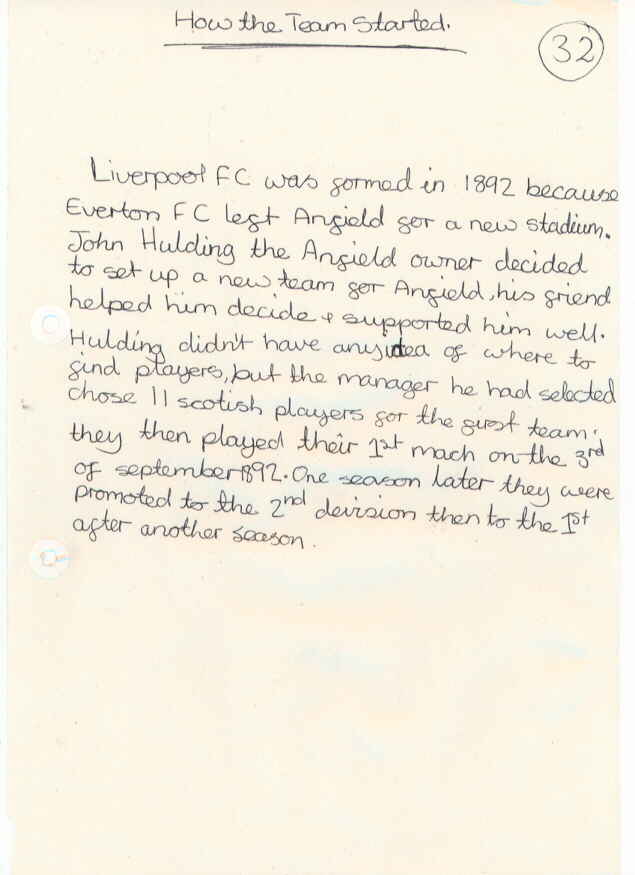 How the Team Started.
32
Liverpool FC was formed in 1892 because
Everton FC left Anfield for a new stadium.
John Hulding the Anfield owner decided
to set up a new team for Anfield, his friend
helped him decide & supported him well.
Hulding didn't have any idea of where to
find players, but the manager he had selected
chose 11 scotish players for the first team.
they then played their 1st mach on the 3rd
of september 1892. One season later they were
promoted to the 2nd devision then to the 1st
after another season.